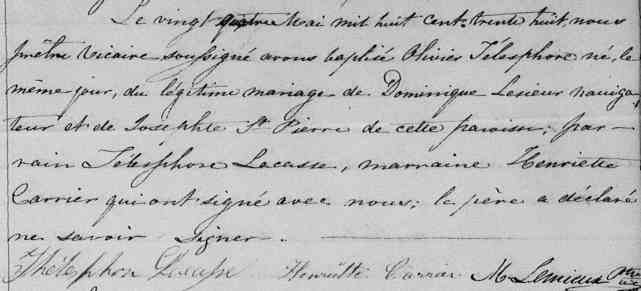 Le vingt quatre Mai mil huit cent trente huit, nous
prêtre vicaire soussigné avons baptisé Olivier Télesphore né, le
même jour, du légitime mariage de Dominique Lesieur naviga-
teur et de Josephte St Pierre de cette paroisse; par-
rain Télesphore Lacasse, marraine Henriette
Carrier qui ont signé avec nous; le père a déclaré
ne savoir signer.
Thélesphor Lacasse Henriette Carrier M Lemieux Ptre